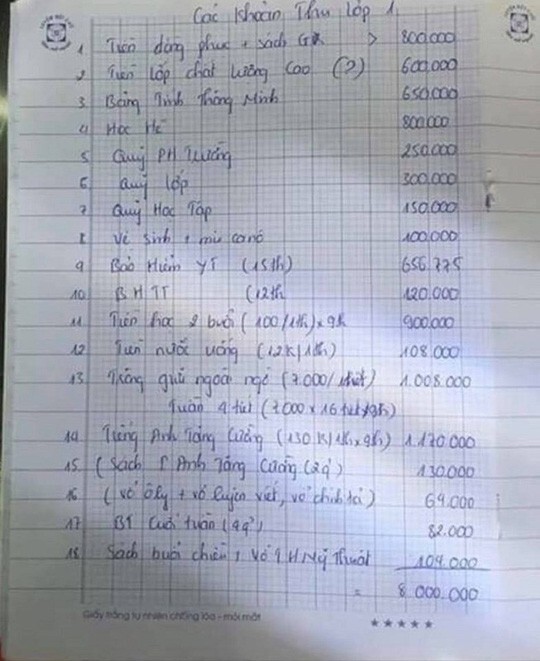 Các khoản Thu lớp 1
1 Tiền đồng phục + sách GK > 800.000
2 Tiền lớp chất lượng cao (?) 600.000
3 Bảng Tính Thông Minh 650.000
4 Học Hè 800.000
5 Quỹ PH Trường 250.000
6 Quỹ lớp 300.000
7 Quỹ Học Tập 150.000
8 Vệ sinh + mũ ca nô 100.000
9 Bảo Hiểm YT (15th) 656.775
10 BHTT (12th 120.000
11 Tiền học 2 buổi (100/1th) x 9th 900.000
12 Tiền nước uống (12K/1th) 108.000
13 Trông giữ ngoài ngọ (7.000/1tiết) 1.008.000
Tuần 4 tiết (7.000 x 16 tiết/9th)
14 Tiếng Anh Tăng Cường (130K/1th x 9th) 1.170.000
15 (Sách T Anh Tăng Cường (2q) 130.000
16 (vở ôly + vở luyện viết, vở chính tả) 69.000
17 BT Cuối tuần (4q) 82.000
18 Sách buổi chiều, vở Mỹ Thuật 104.000
= 8.000.000
Giấy trắng tự nhiên chống lóa - mỏi mắt
★★★★★